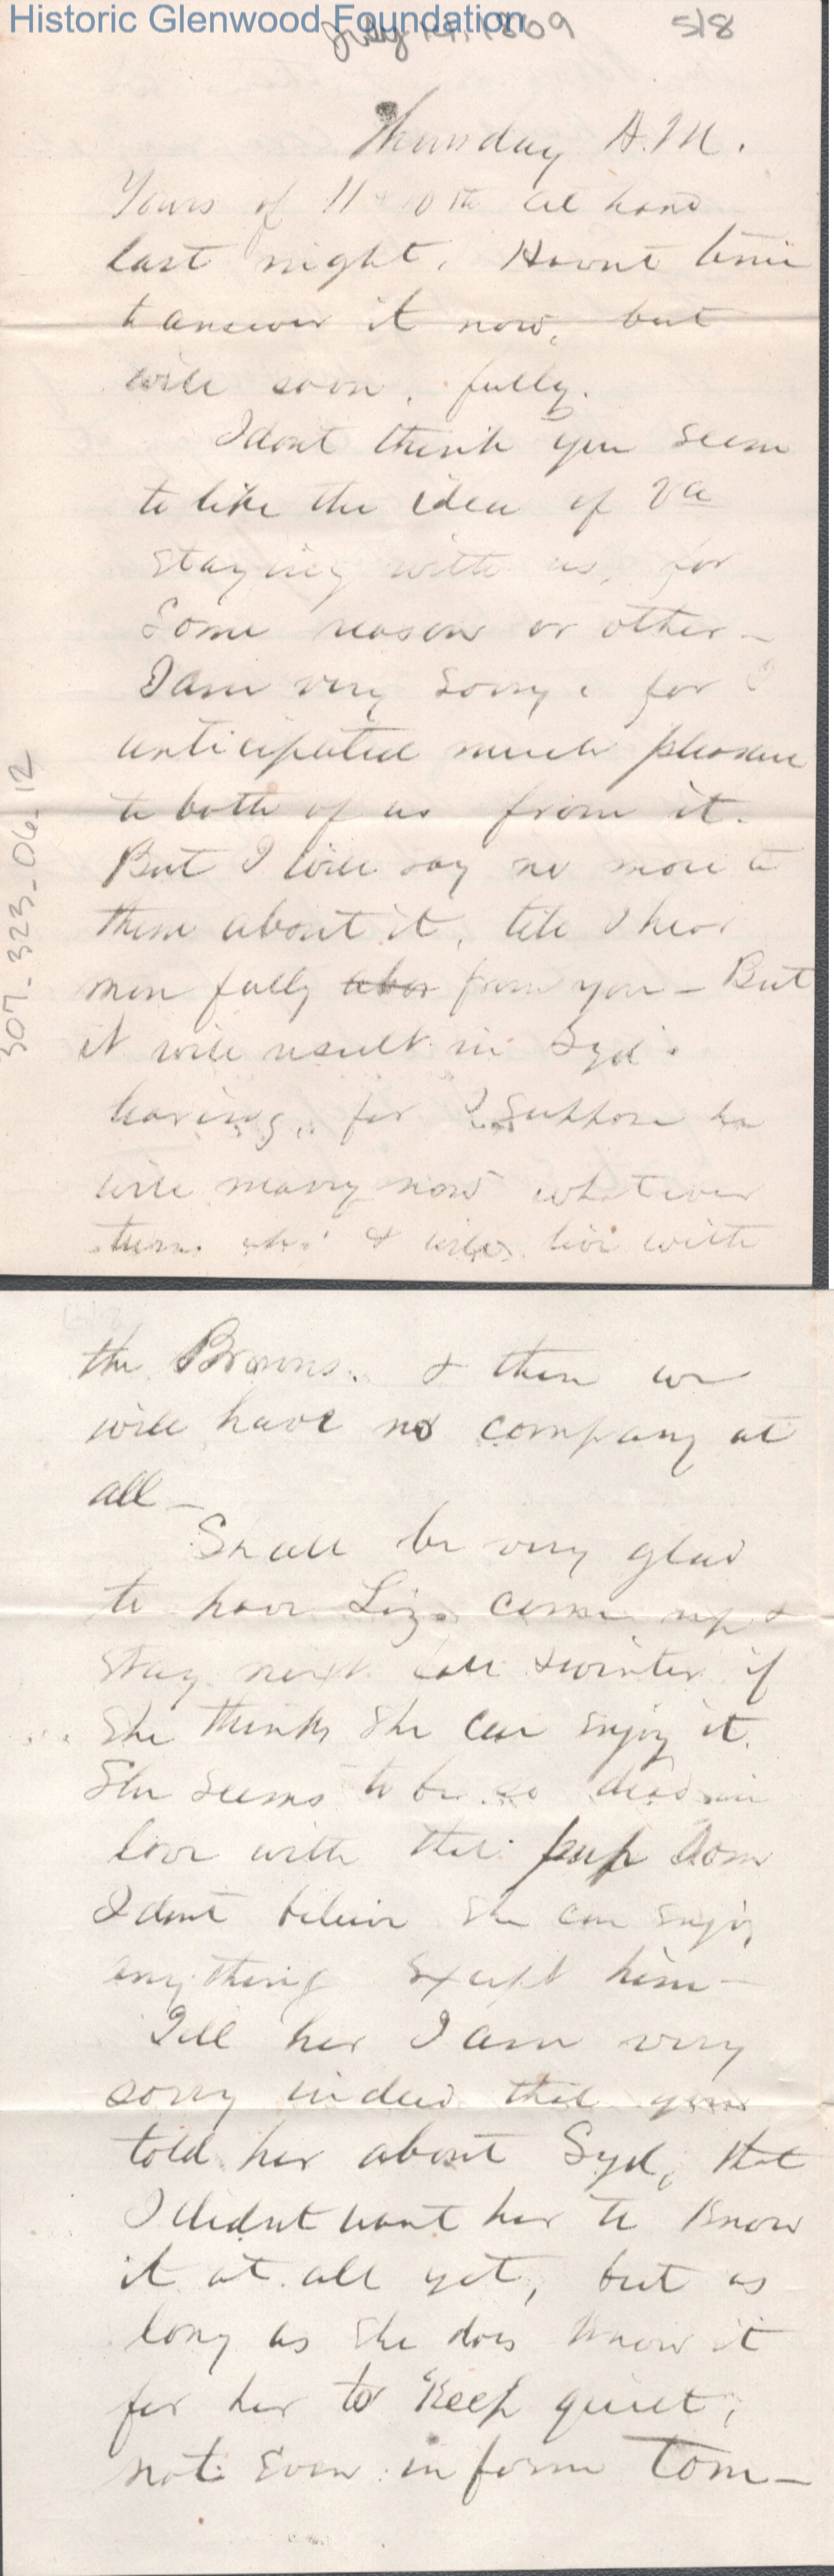 Historic Glenwood Foundation
July 14, 1869 518
Thursday A.M.
Yours of 11 & 10th at hand
last night. Havnt time
to answer it now, but
will soon, fully.
I dont think you seem
to like the idea of Va
staying with us, for
Some reason or other –
I am very sorry, for I
anticipated much pleasure
to both of us from it.
But I will say no more to
them about it, till I hear
more fully from you – But
it will result in Syd's
leaving, for I suppose he
will marry now whatever
turns & will live with
the Browns. & then we
will have no company at
all –
Shall be very glad
to have Liz. come up &
stay next fall & winter if
She thinks She can enjoy it.
She seems to be so dead in
love with that pup Tom
I dont believe She can enjoy
anything Except him –
Tell her I am very
sorry indeed that you
told her about Syd, that
I didnt want her to Know
it at all yet, but as
long as She does Know it
for her to Keep quiet,
not Even inform Tom –
307-323-06-12